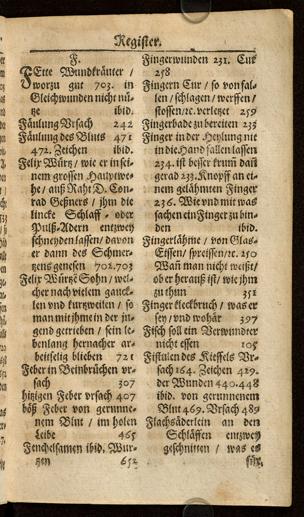 Register.
F.
FEtte Wundkräuter /
worzu gut 703. in
Gleichwunden nicht nü-
tze ibid.
Fäulung Vrsach 242
Fäulung des Bluts 471
472. Zeichen ibid.
Felix Würtz / wie er in sei-
nem grossen Hauptwe-
he / auß Raht D. Con-
rad Geßners / ihm die
lincke Schlaff- oder
Pulß-Adern entzwey
schneyden lassen / davon
er dann des Schmer-
tzens genesen 702.703
Felix Würtz Sohn / wel-
cher nach vielem gauck-
len und kurtzweilen / so
man mit ihme in der ju-
gend getrieben / sein le-
benlang hernacher ar-
beitselig blieben 721
Feber in Beinbrüchen vr-
sach 307
hitzigen Feber vrsach 407
böß Feber von gerunne-
nem Blut / im holen
Leibe 465
Fenchelsamen ibid. Wur-
tzen 652
Fingerwunden 231. Cur
258
Fingern Cur / so von fal-
len / schlagen / werffen /
stossen / ꝛc. verletzet 259
Fingerbade zu bereiten 235
Finger in der Heylung nit
in die Hand fallen lassen
234. ist besser krum dañ
gerad 233. Knopff an ei-
nem gelähmten Finger
236. Wie und mit was
sachen ein Finger zu bin-
den ibid.
Fingerlähme / von Glas-
Eissen / spreissen / ꝛc. 250
Wañ man nicht weißt /
ob er herauß ist / wie jhm
zu thun 351
Finger fleckbruch / was er
sey / und wohär 397
Fisch soll ein Verwundter
nicht essen 105
Fistulen des Kieffels Vr-
sach 164. Zeichen 429.
der Wunden 440.448
ibid. von gerunnenem
Blut 469. Vrsach 489
Flachsäderlein an den
Schläffen entzwey
geschnitten / was es
für.